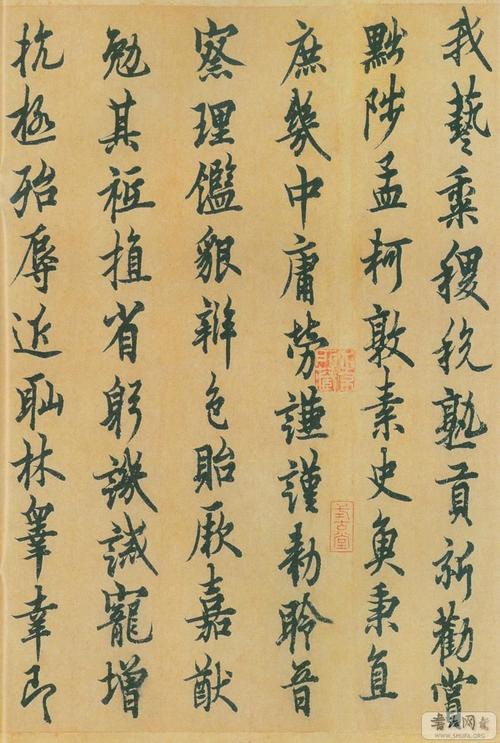 我藝黍稷税熟貢新勸賞
黜陟孟軻敦素史魚秉直
庶幾中庸勞謙謹勅聆音
察理鑑貌辨色貽厥嘉猷
勉其祗植省躬譏誡寵增
抗極殆辱近耻林皋幸即
式古堂
书法网
WWW.SHUFA.ORG